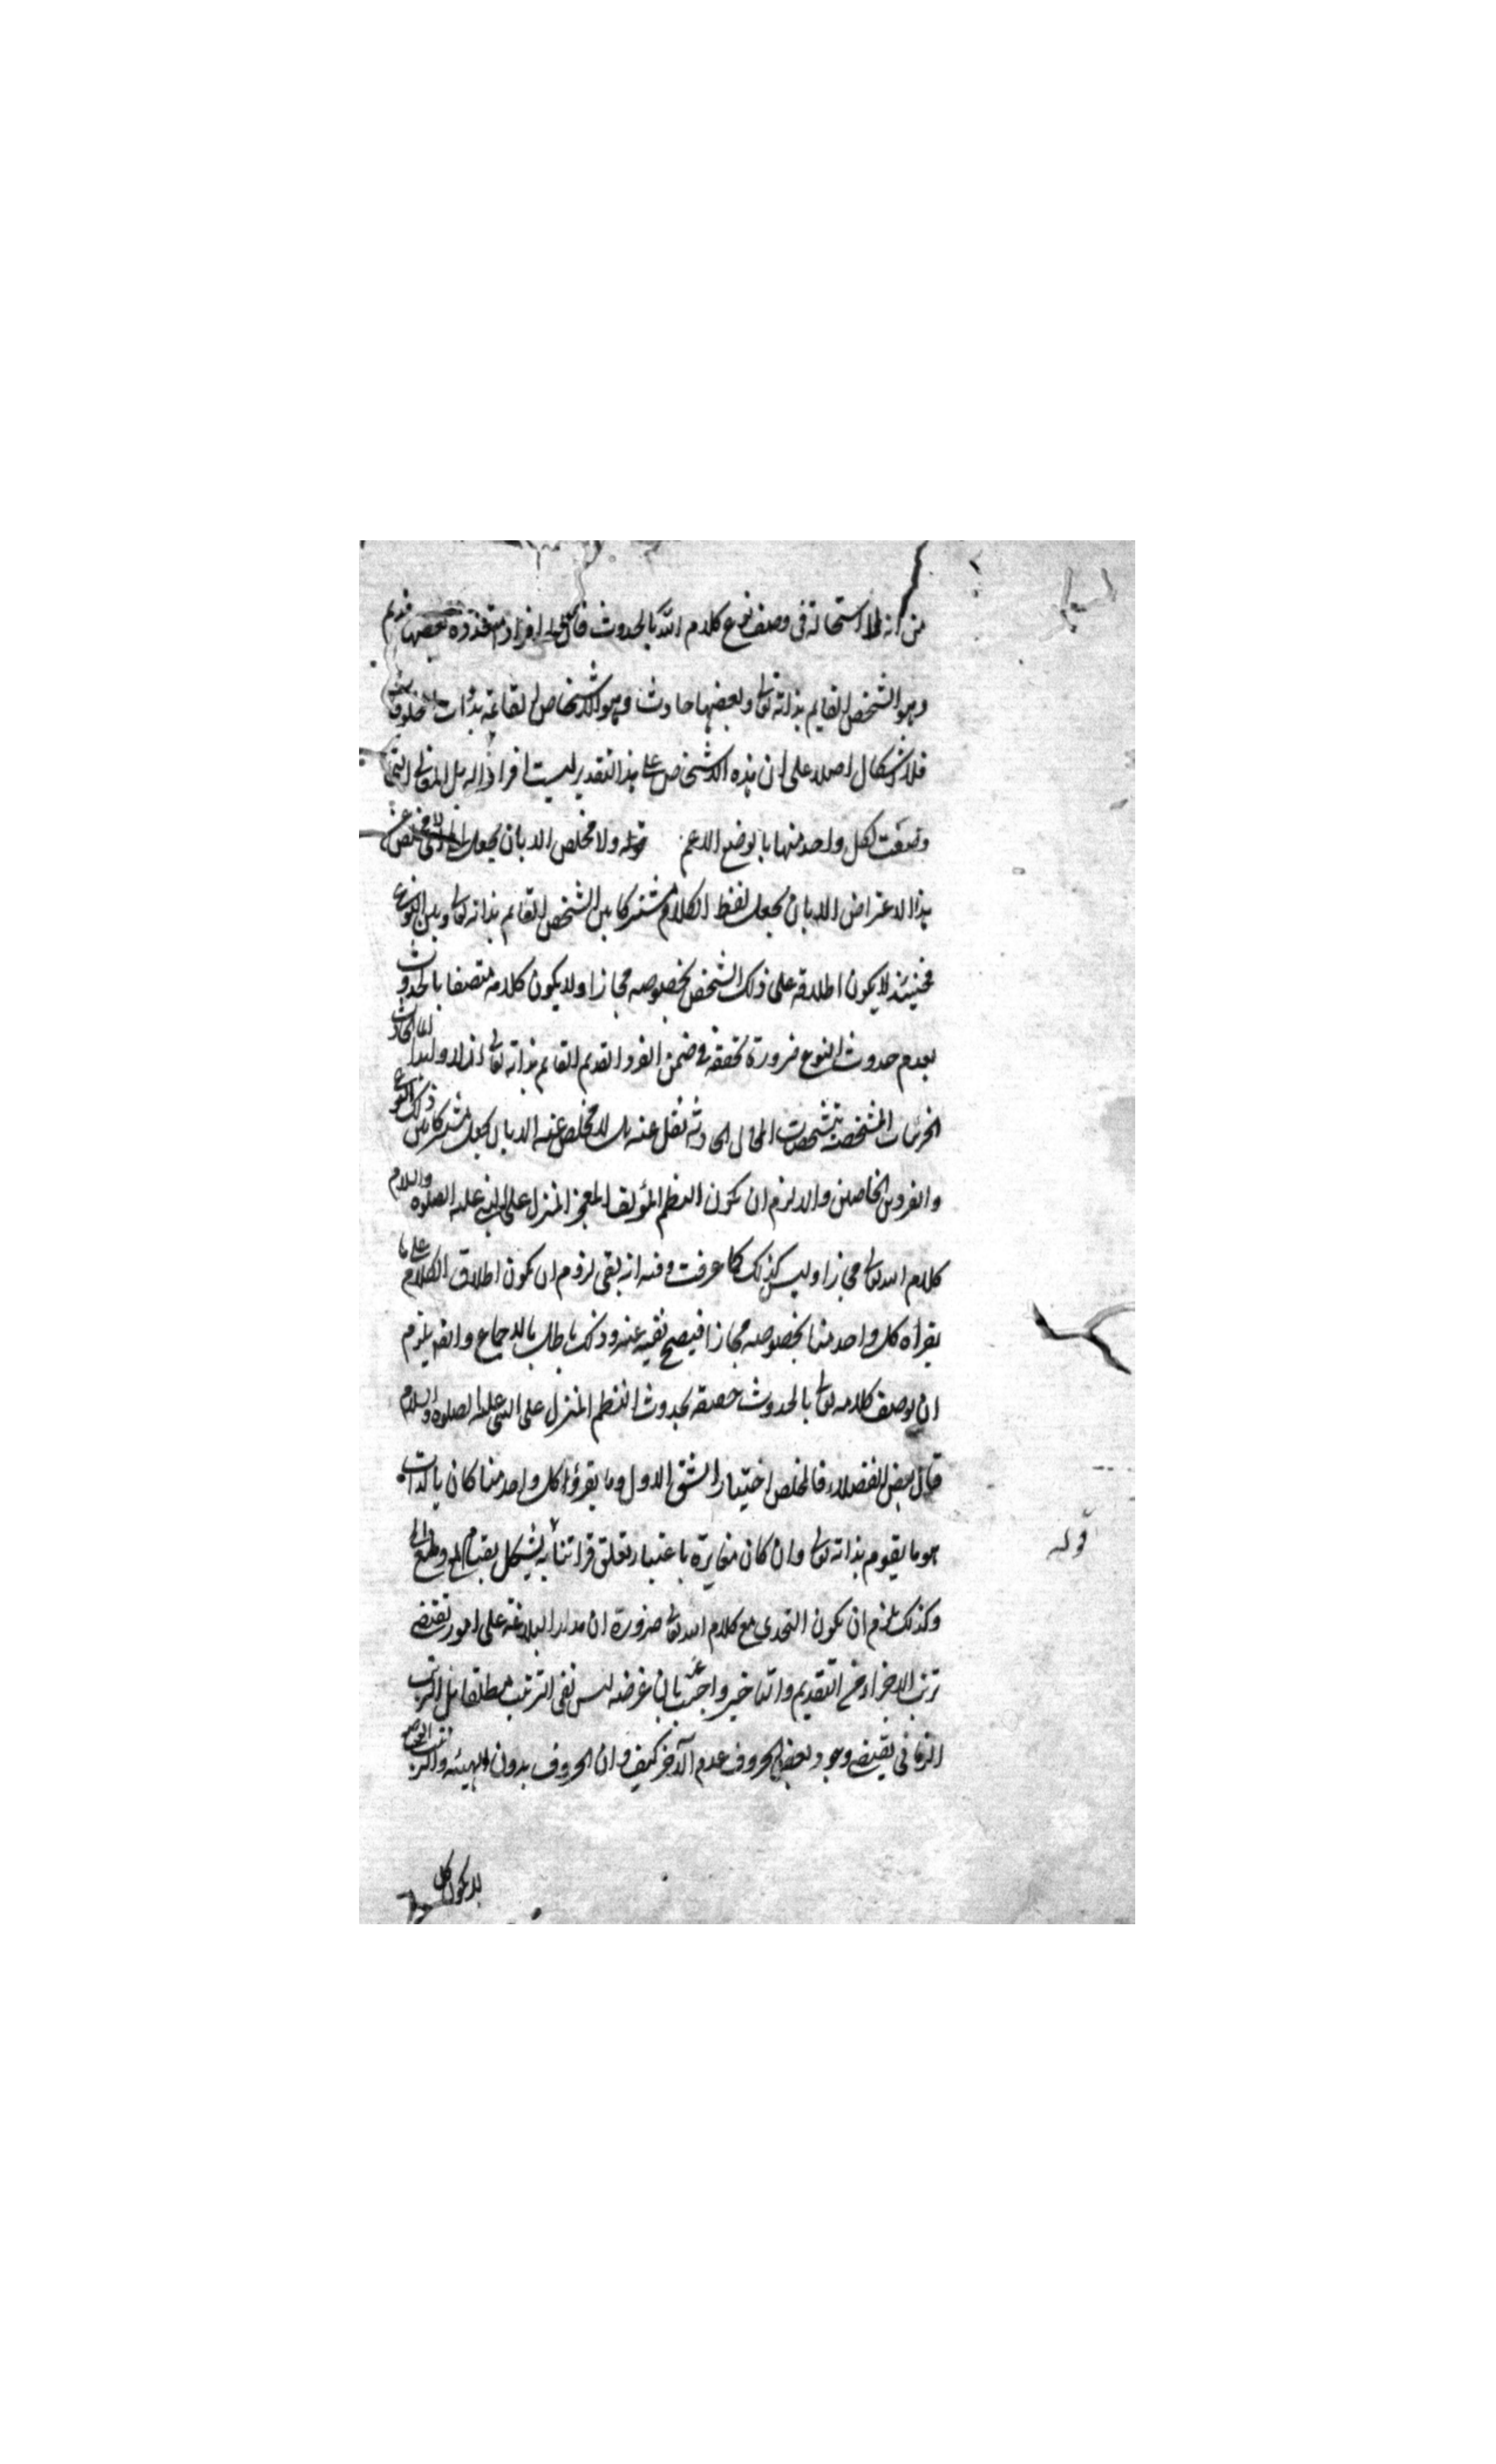 من انه لا استحالة فى وصف نوع كلام الله بالحدوث فان له افراد متعددة بعضها قديم
وهو الشخص القايم بذاته تعالى وبعضها حادث وهو الاشخاص القائمة بذات المخلوقات
فلا اشكال اصلا على ان هذه الاشخاص على هذا التقدير ليست افرادا له بل المعانى التى
وضعت لكل واحد منها بالوضع الاعم قوله ولا مخلص الا بان يجعل اى لا مخلص عن
هذا الاعتراض الا بان يجعل لفظ الكلام مشتركا بين الشخص القايم بذاته تعالى وبين النوع
فحينئذ لا يكون اطلاقه على ذلك الشخص بخصوصه مجازا ولا يكون كلامه متصفا بالحدوث
بعدم حدوث النوع ضرورة تحققه فى ضمن الفرد القديم القايم بذاته تعالى ازلا وابدا انما الحادث
الجزئيات المتشخصة بتشخصات المحال الحادثة نقل عنه بل لا مخلص عنه الا بان يجعل مشتركا بين ذلك النوع
والفردين الخاصين والا لزم ان يكون النظم المؤلف المعجز المنزل على النبى عليه الصلوة والسلام
كلام الله تعالى مجازا وليس كذلك كما عرفت وفيه انه بقى لزوم ان يكون اطلاق الكلام على ما
يقرأه كل واحد منا بخصوصه مجازا فيصح نفيه عنه وذلك باطل بالاجماع وايضا يلزم
ان يوصف كلامه تعالى بالحدوث حقيقة بحدوث النظم المنزل على النبى عليه الصلوة والسلام
قال بعض الفضلاء فالمخلص اختيار الشق الاول وما يقرؤه كل واحد منا كان بالذات
هو ما يقوم بذاته تعالى وان كان مغايرة باعتبار تعلق قرائتنا به يشكل بقيام
قوله
وكذلك يلزم ان يكون التحدى مع كلام الله تعالى ضرورة ان مدار البلاغة على امور تقتضى
ترتب الاجزاء من التقديم والتاخير واجيب عنه بان غرضه ليس نفى الترتيب مطلقا بل الترتيب
الزمانى يقتضى وجود بعض الحروف عدم الآخر كيف وان الحروف بدون الهيئة والترتيب
لا يكون كل